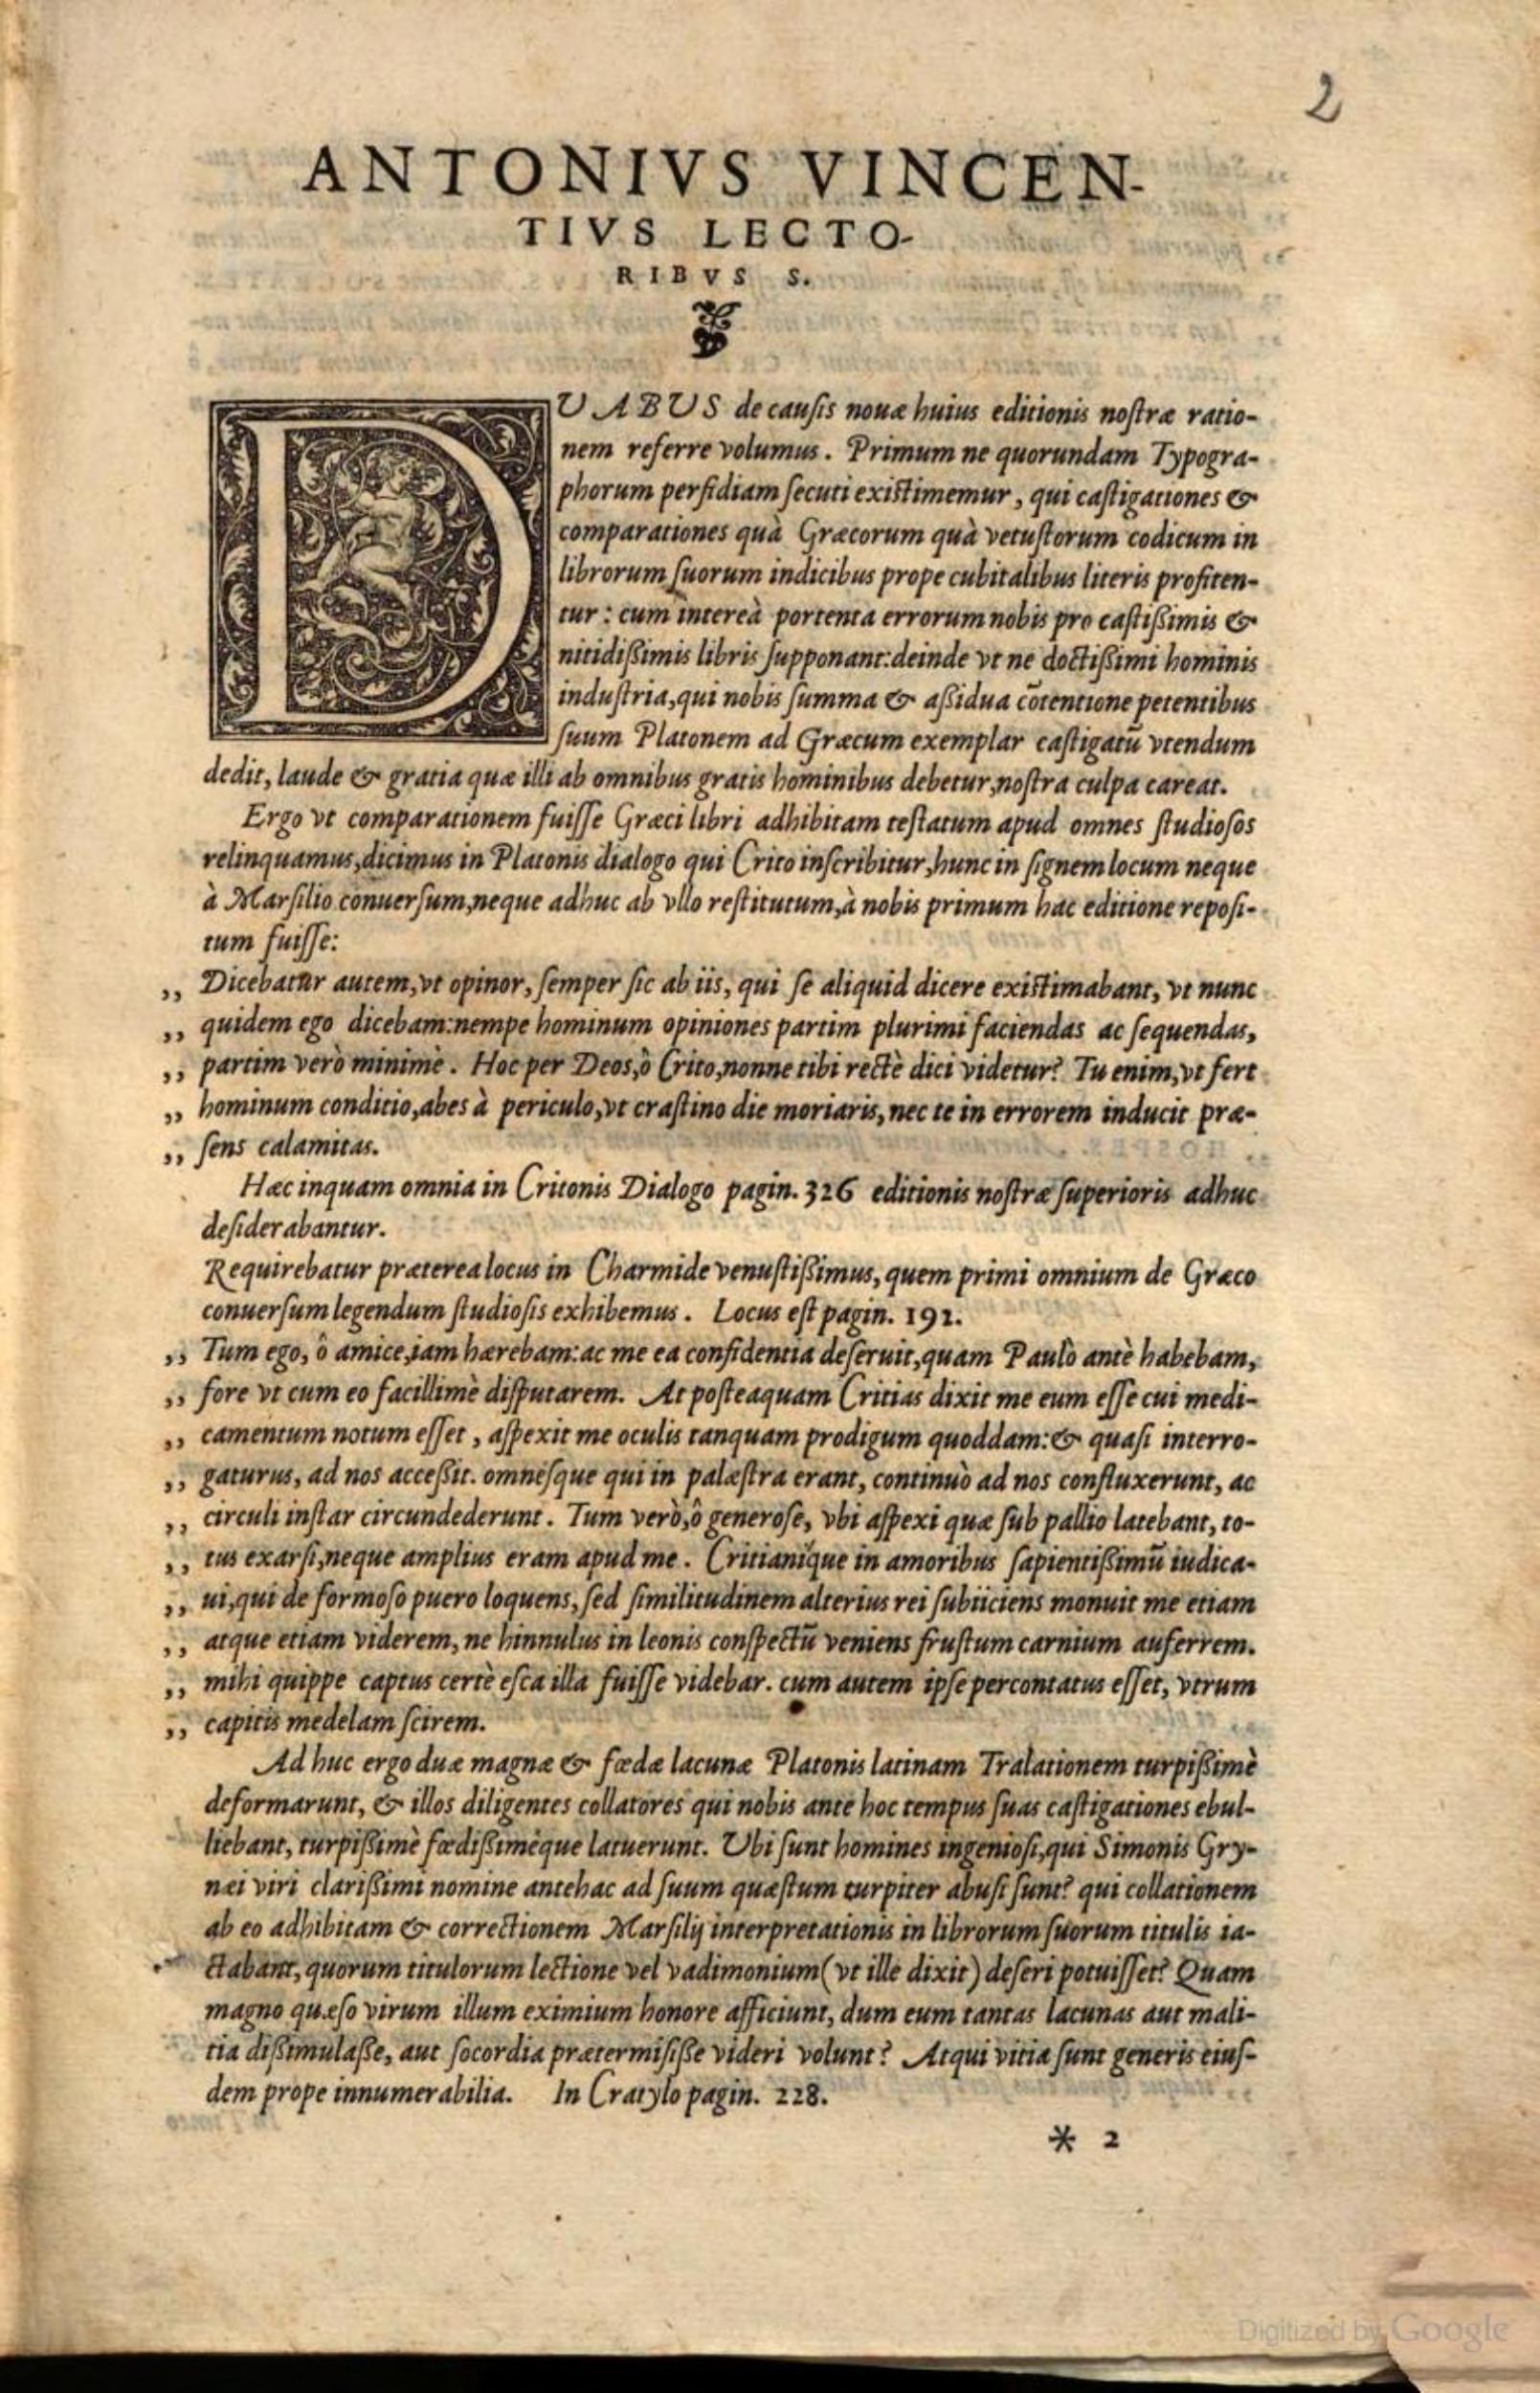 2
ANTONIVS VINCEN-
TIVS LECTO-
RIBVS S.
DUABUS de causis nouæ huius editionis nostræ ratio-
nem referre volumus. Primum ne quorundam Typogra-
phorum perfidiam secuti existimemur, qui castigationes &
comparationes quà Græcorum quà vetustorum codicum in
librorum suorum indicibus prope cubitalibus literis profiten-
tur: cum intereà portenta errorum nobis pro castißimis &
nitidißimis libris supponant: deinde vt ne doctißimi hominis
industria, qui nobis summa & aßidua cōtentione petentibus
suum Platonem ad Græcum exemplar castigatū vtendum
dedit, laude & gratia quæ illi ab omnibus gratis hominibus debetur, nostra culpa careat.
Ergo vt comparationem fuisse Græci libri adhibitam testatum apud omnes studiosos
relinquamus, dicimus in Platonis dialogo qui Crito inscribitur, hunc in signem locum neque
à Marsilio conuersum, neque adhuc ab vllo restitutum, à nobis primum hac editione reposi-
tum fuisse:
,, Dicebatur autem, vt opinor, semper sic ab iis, qui se aliquid dicere existimabant, vt nunc
,, quidem ego dicebam: nempe hominum opiniones partim plurimi faciendas ac sequendas,
,, partim verò minimè. Hoc per Deos, ô Crito, nonne tibi rectè dici videtur? Tu enim, vt fert
,, hominum conditio, abes à periculo, vt crastino die moriaris, nec te in errorem inducit præ-
,, sens calamitas.
Hæc inquam omnia in Critonis Dialogo pagin. 326 editionis nostræ superioris adhuc
desiderabantur.
Requirebatur præterea locus in Charmide venustißimus, quem primi omnium de Græco
conuersum legendum studiosis exhibemus. Locus est pagin. 192.
,, Tum ego, ô amice, iam hærebam: ac me ea confidentia deseruit, quam Paulò antè habebam,
,, fore vt cum eo facillimè disputarem. At posteaquam Critias dixit me eum esse cui medi-
,, camentum notum esset, aspexit me oculis tanquam prodigum quoddam: & quasi interro-
,, gaturus, ad nos acceßit. omnésque qui in palæstra erant, continuò ad nos confluxerunt, ac
,, circuli instar circundederunt. Tum verò, ô generose, vbi aspexi quæ sub pallio latebant, to-
,, tus exarsi, neque amplius eram apud me. Critiamque in amoribus sapientißimū iudica-
,, ui, qui de formoso puero loquens, sed similitudinem alterius rei subiiciens monuit me etiam
,, atque etiam viderem, ne hinnulus in leonis conspectū veniens frustum carnium auferrem.
,, mihi quippe captus certè esca illa fuisse videbar. cum autem ipse percontatus esset, vtrum
,, capitis medelam scirem.
Adhuc ergo duæ magnæ & fœdæ lacunæ Platonis latinam Tralationem turpißimè
deformarunt, & illos diligentes collatores qui nobis ante hoc tempus suas castigationes ebul-
liebant, turpißimè fœdißiméque latuerunt. Ubi sunt homines ingeniosi, qui Simonis Gry-
næi viri clarißimi nomine antehac ad suum quæstum turpiter abusi sunt? qui collationem
ab eo adhibitam & correctionem Marsilij interpretationis in librorum suorum titulis ia-
ctabant, quorum titulorum lectione vel vadimonium (vt ille dixit) deseri potuisset? Quam
magno quæso virum illum eximium honore afficiunt, dum eum tantas lacunas aut mali-
tia dißimulaße, aut socordia prætermisiße videri volunt? Atqui vitia sunt generis eius-
dem prope innumerabilia. In Cratylo pagin. 228.
* 2
Digitized by Google